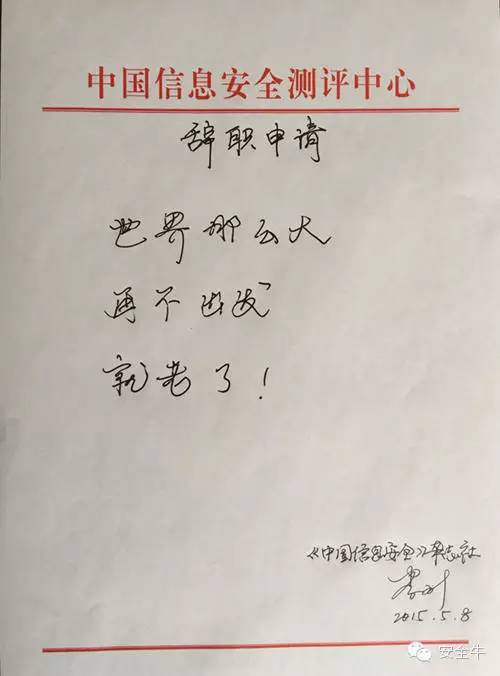 中国信息安全测评中心
辞职申请
世界那么大
再不出发
就老了！
《中国信息安全》杂志社
2015.5.8
安全牛